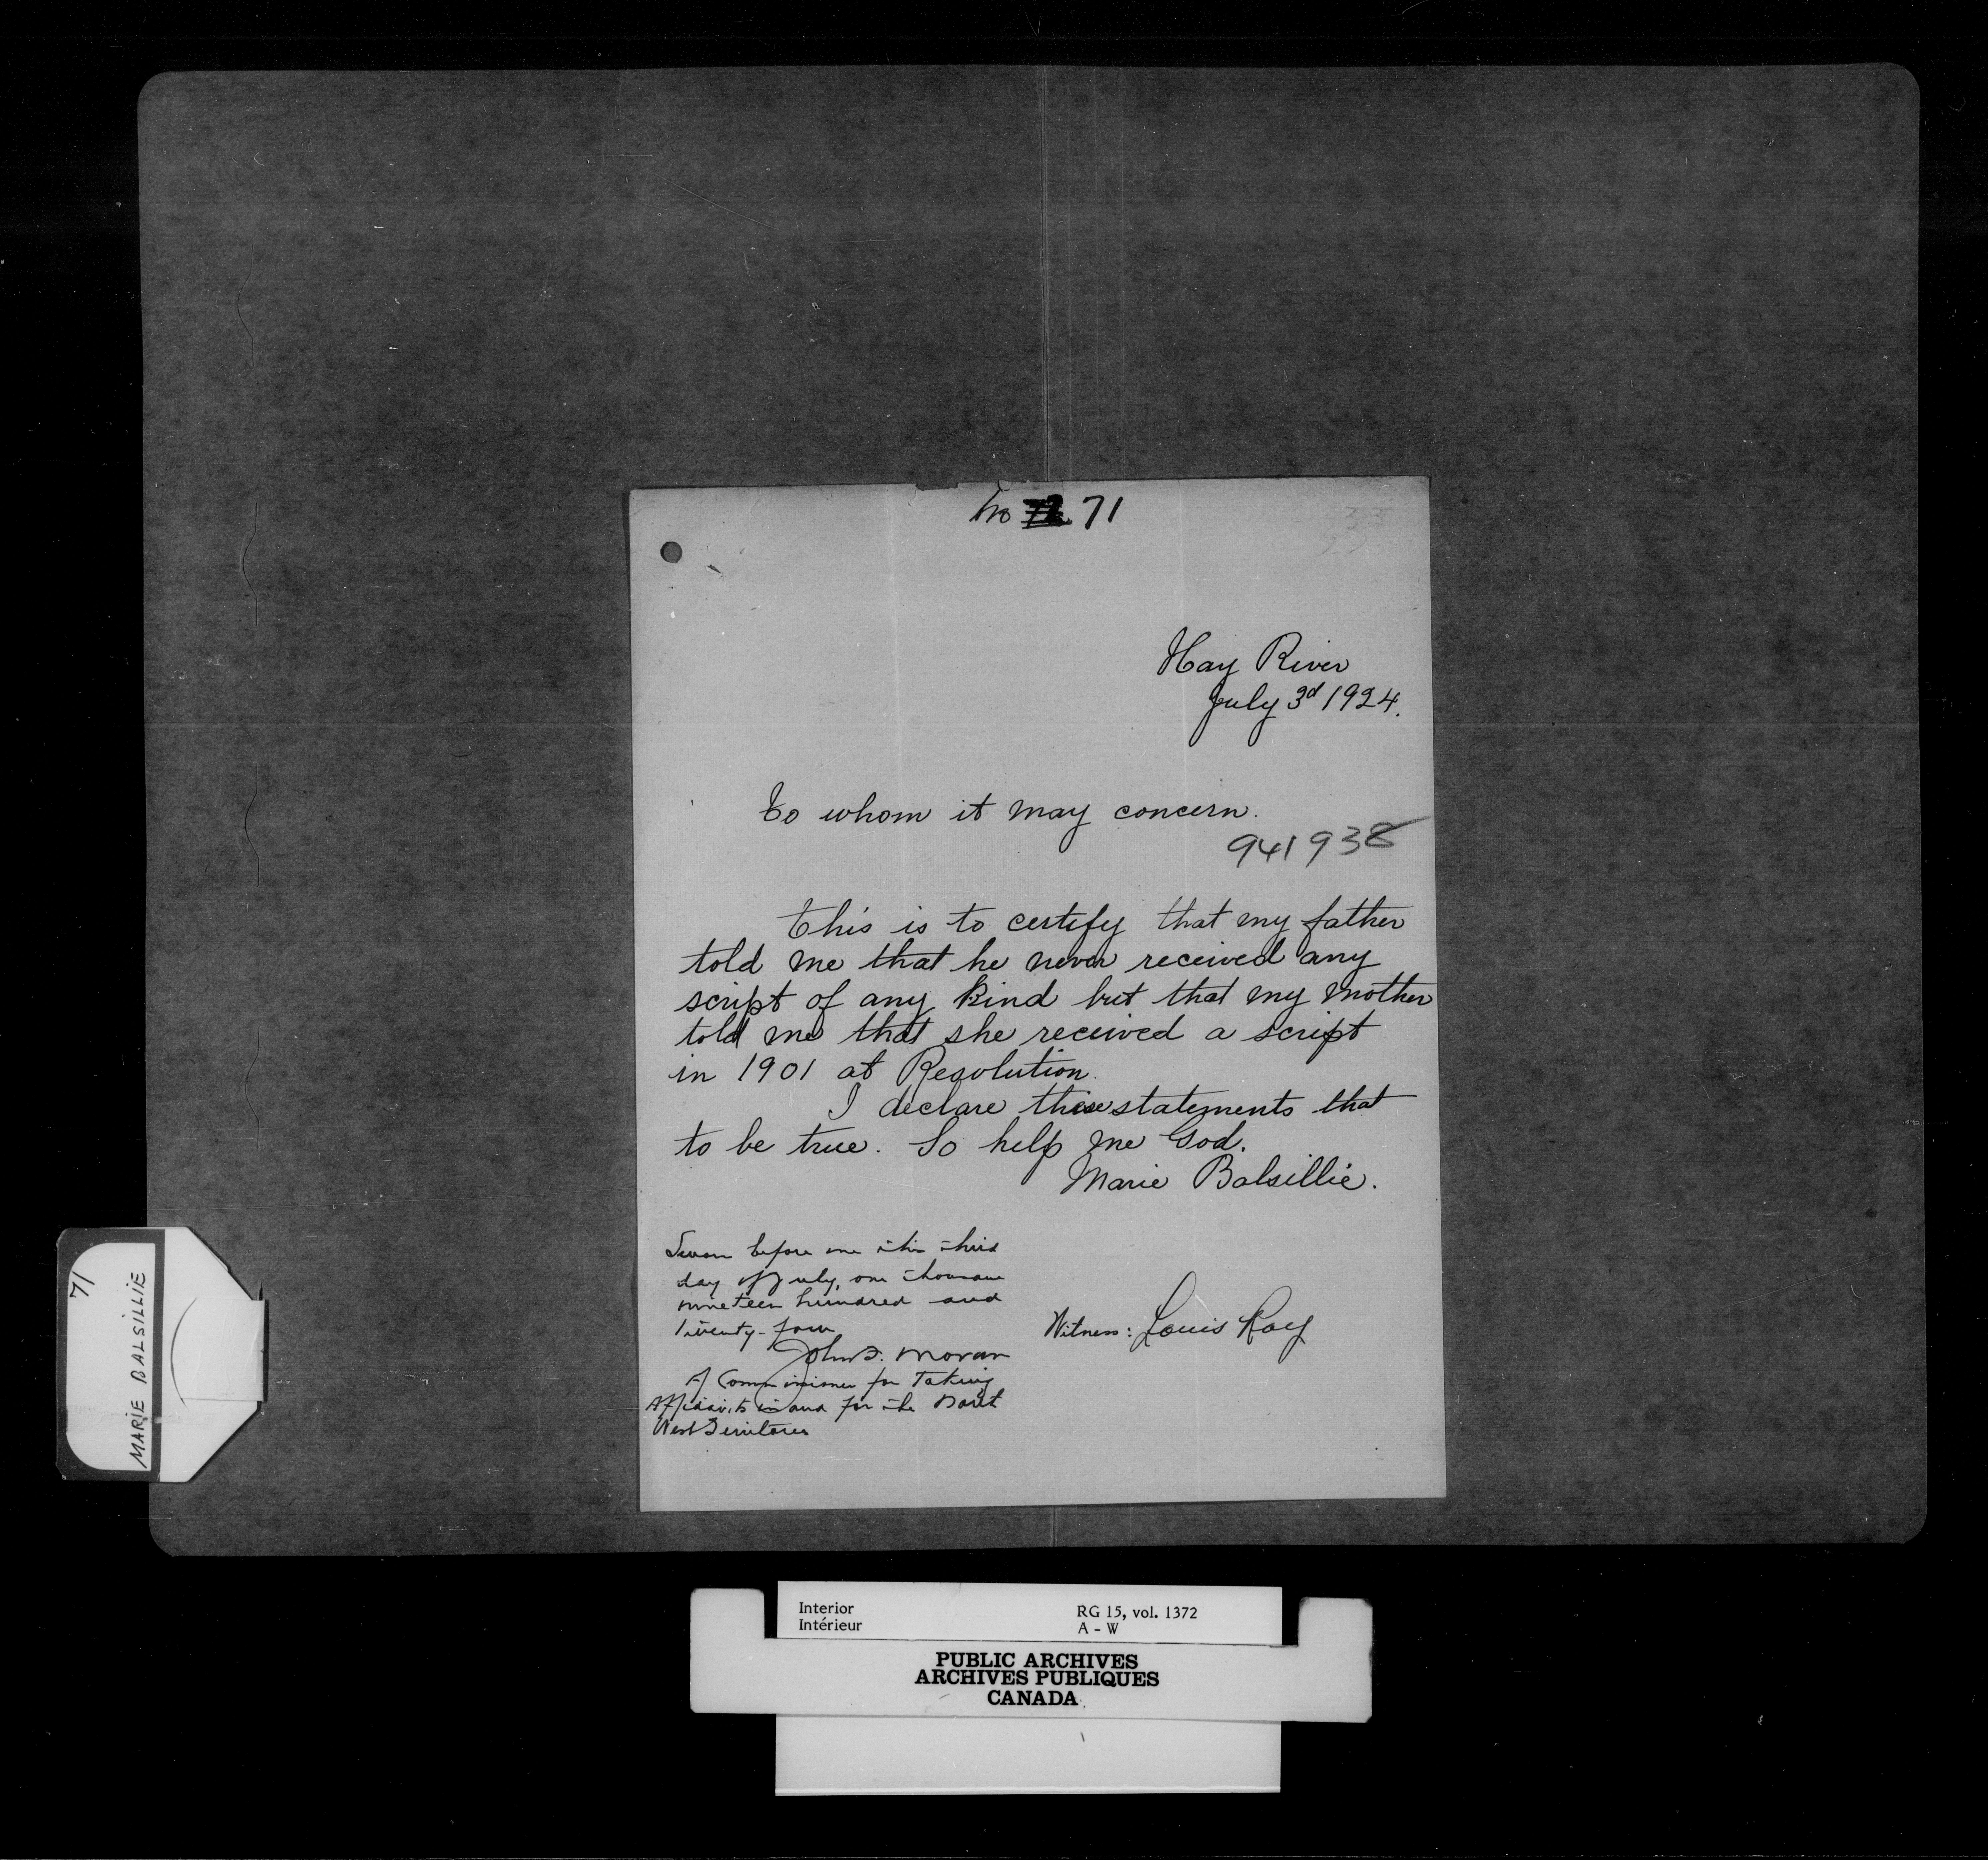 No 71
Hay River
July 3d 1924.
To whom it may concern.
941938
This is to certify that my father
told me that he never received any
script of any kind but that my mother
told me that she received a script
in 1901 at Resolution.
I declare these statements that
to be true. So help me God.
Marie Balsillie.
Sworn before me this third
day of July, one thousand
nineteen hundred and
twenty-four
John F. Moran
A Commissioner for Taking
Affidavits in and for the North
West Territories
Witness: Louis Roy
71
MARIE BALSILLIE
Interior
Intérieur
RG 15, vol. 1372
A - W
PUBLIC ARCHIVES
ARCHIVES PUBLIQUES
CANADA